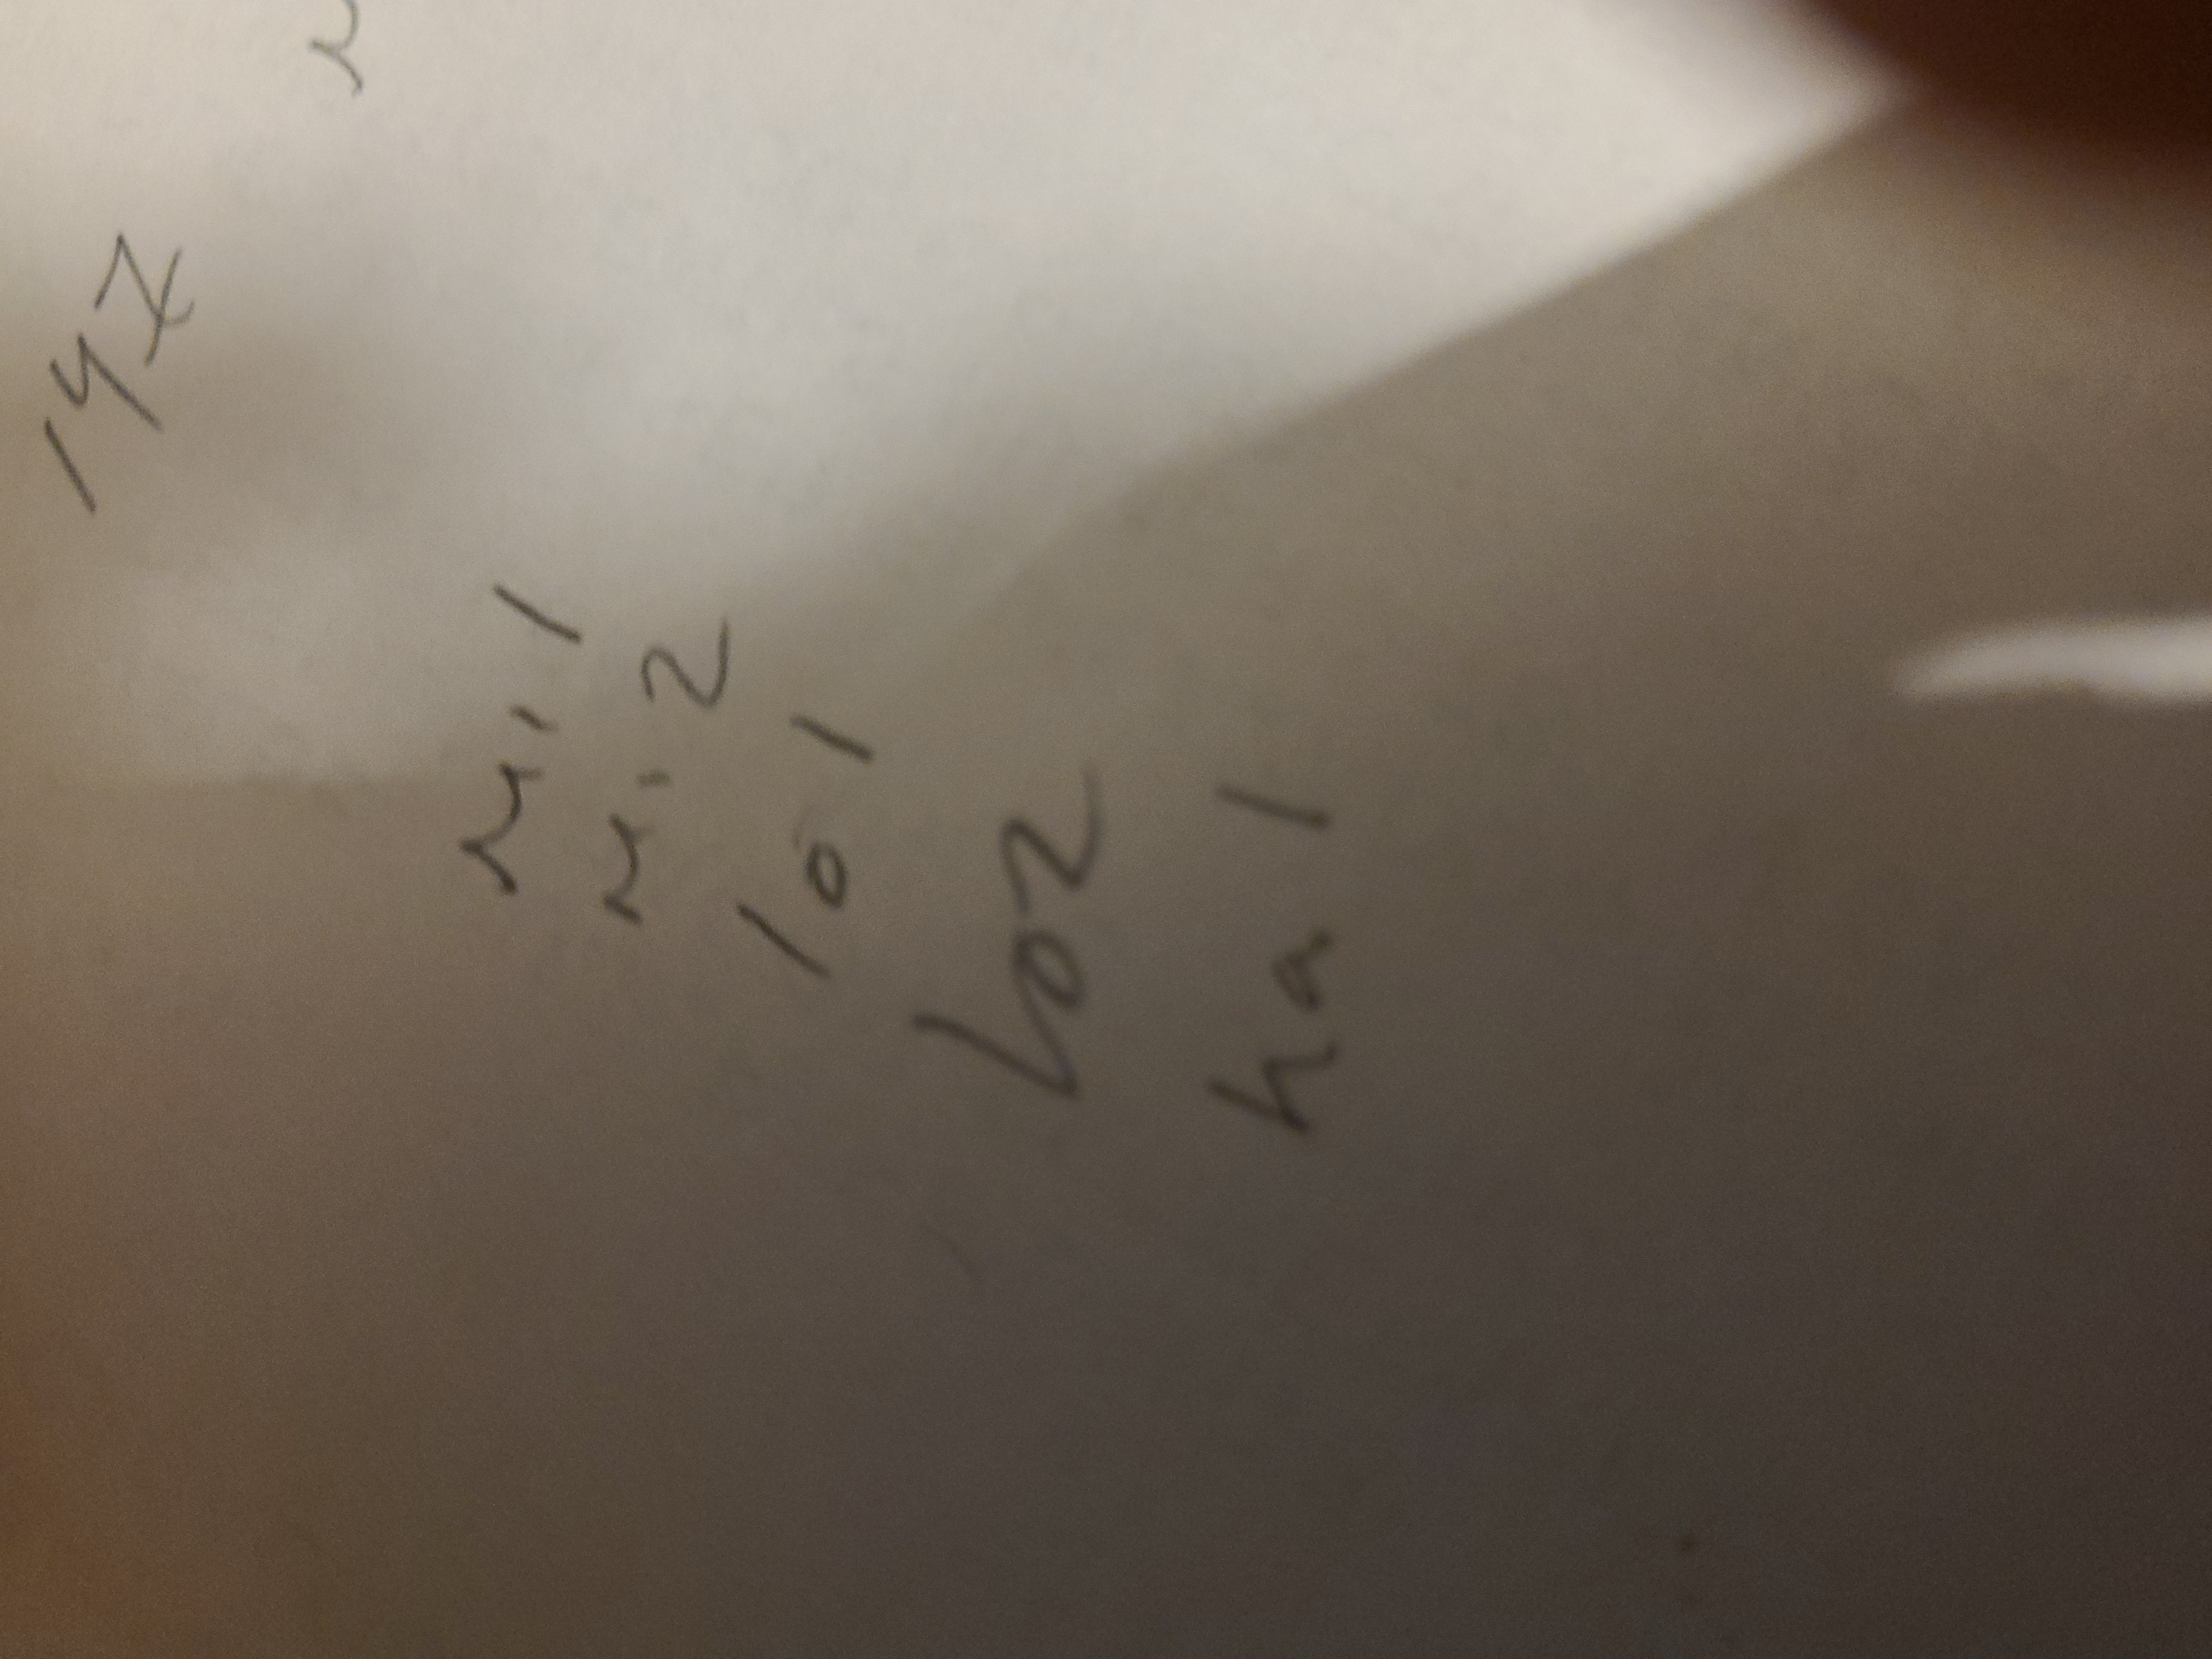 147
mi 1
mi 2
lo 1
lo2
ha 1